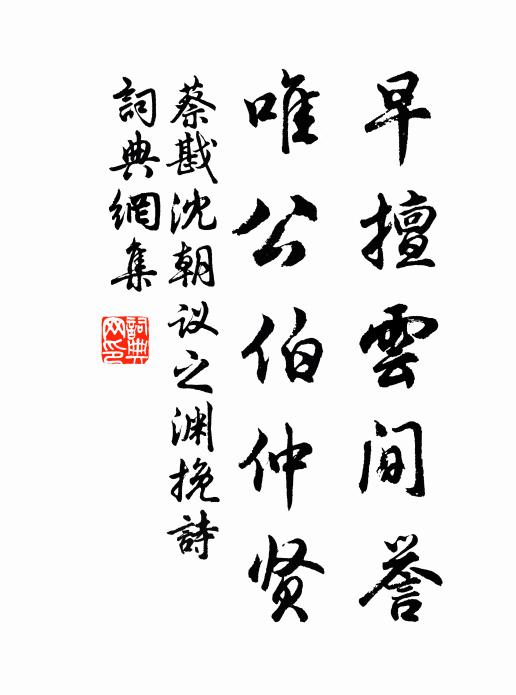 早擅雲間誉
唯公伯仲贤
蔡戡沈朝议之渊挽詩
詞典網集
詞典
网印